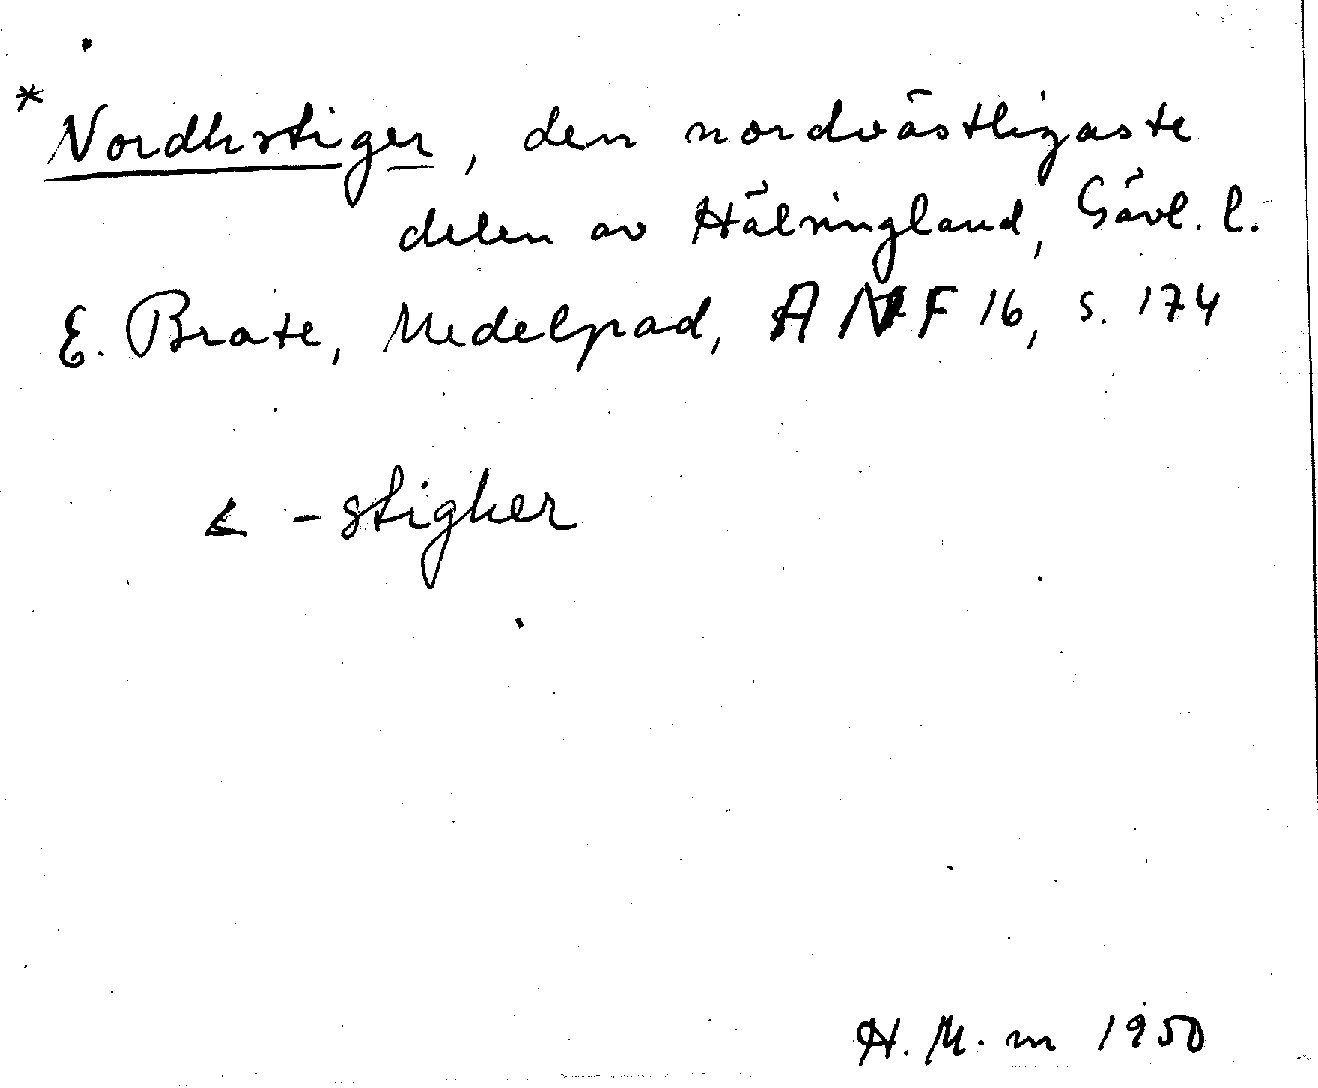 * Nordhstiger, den nordvästligaste
delen av Hälsingland, Gävl. l.
E. Brate, Medelpad, ANF 16, s. 174
< -stigher
H. M. m 1950